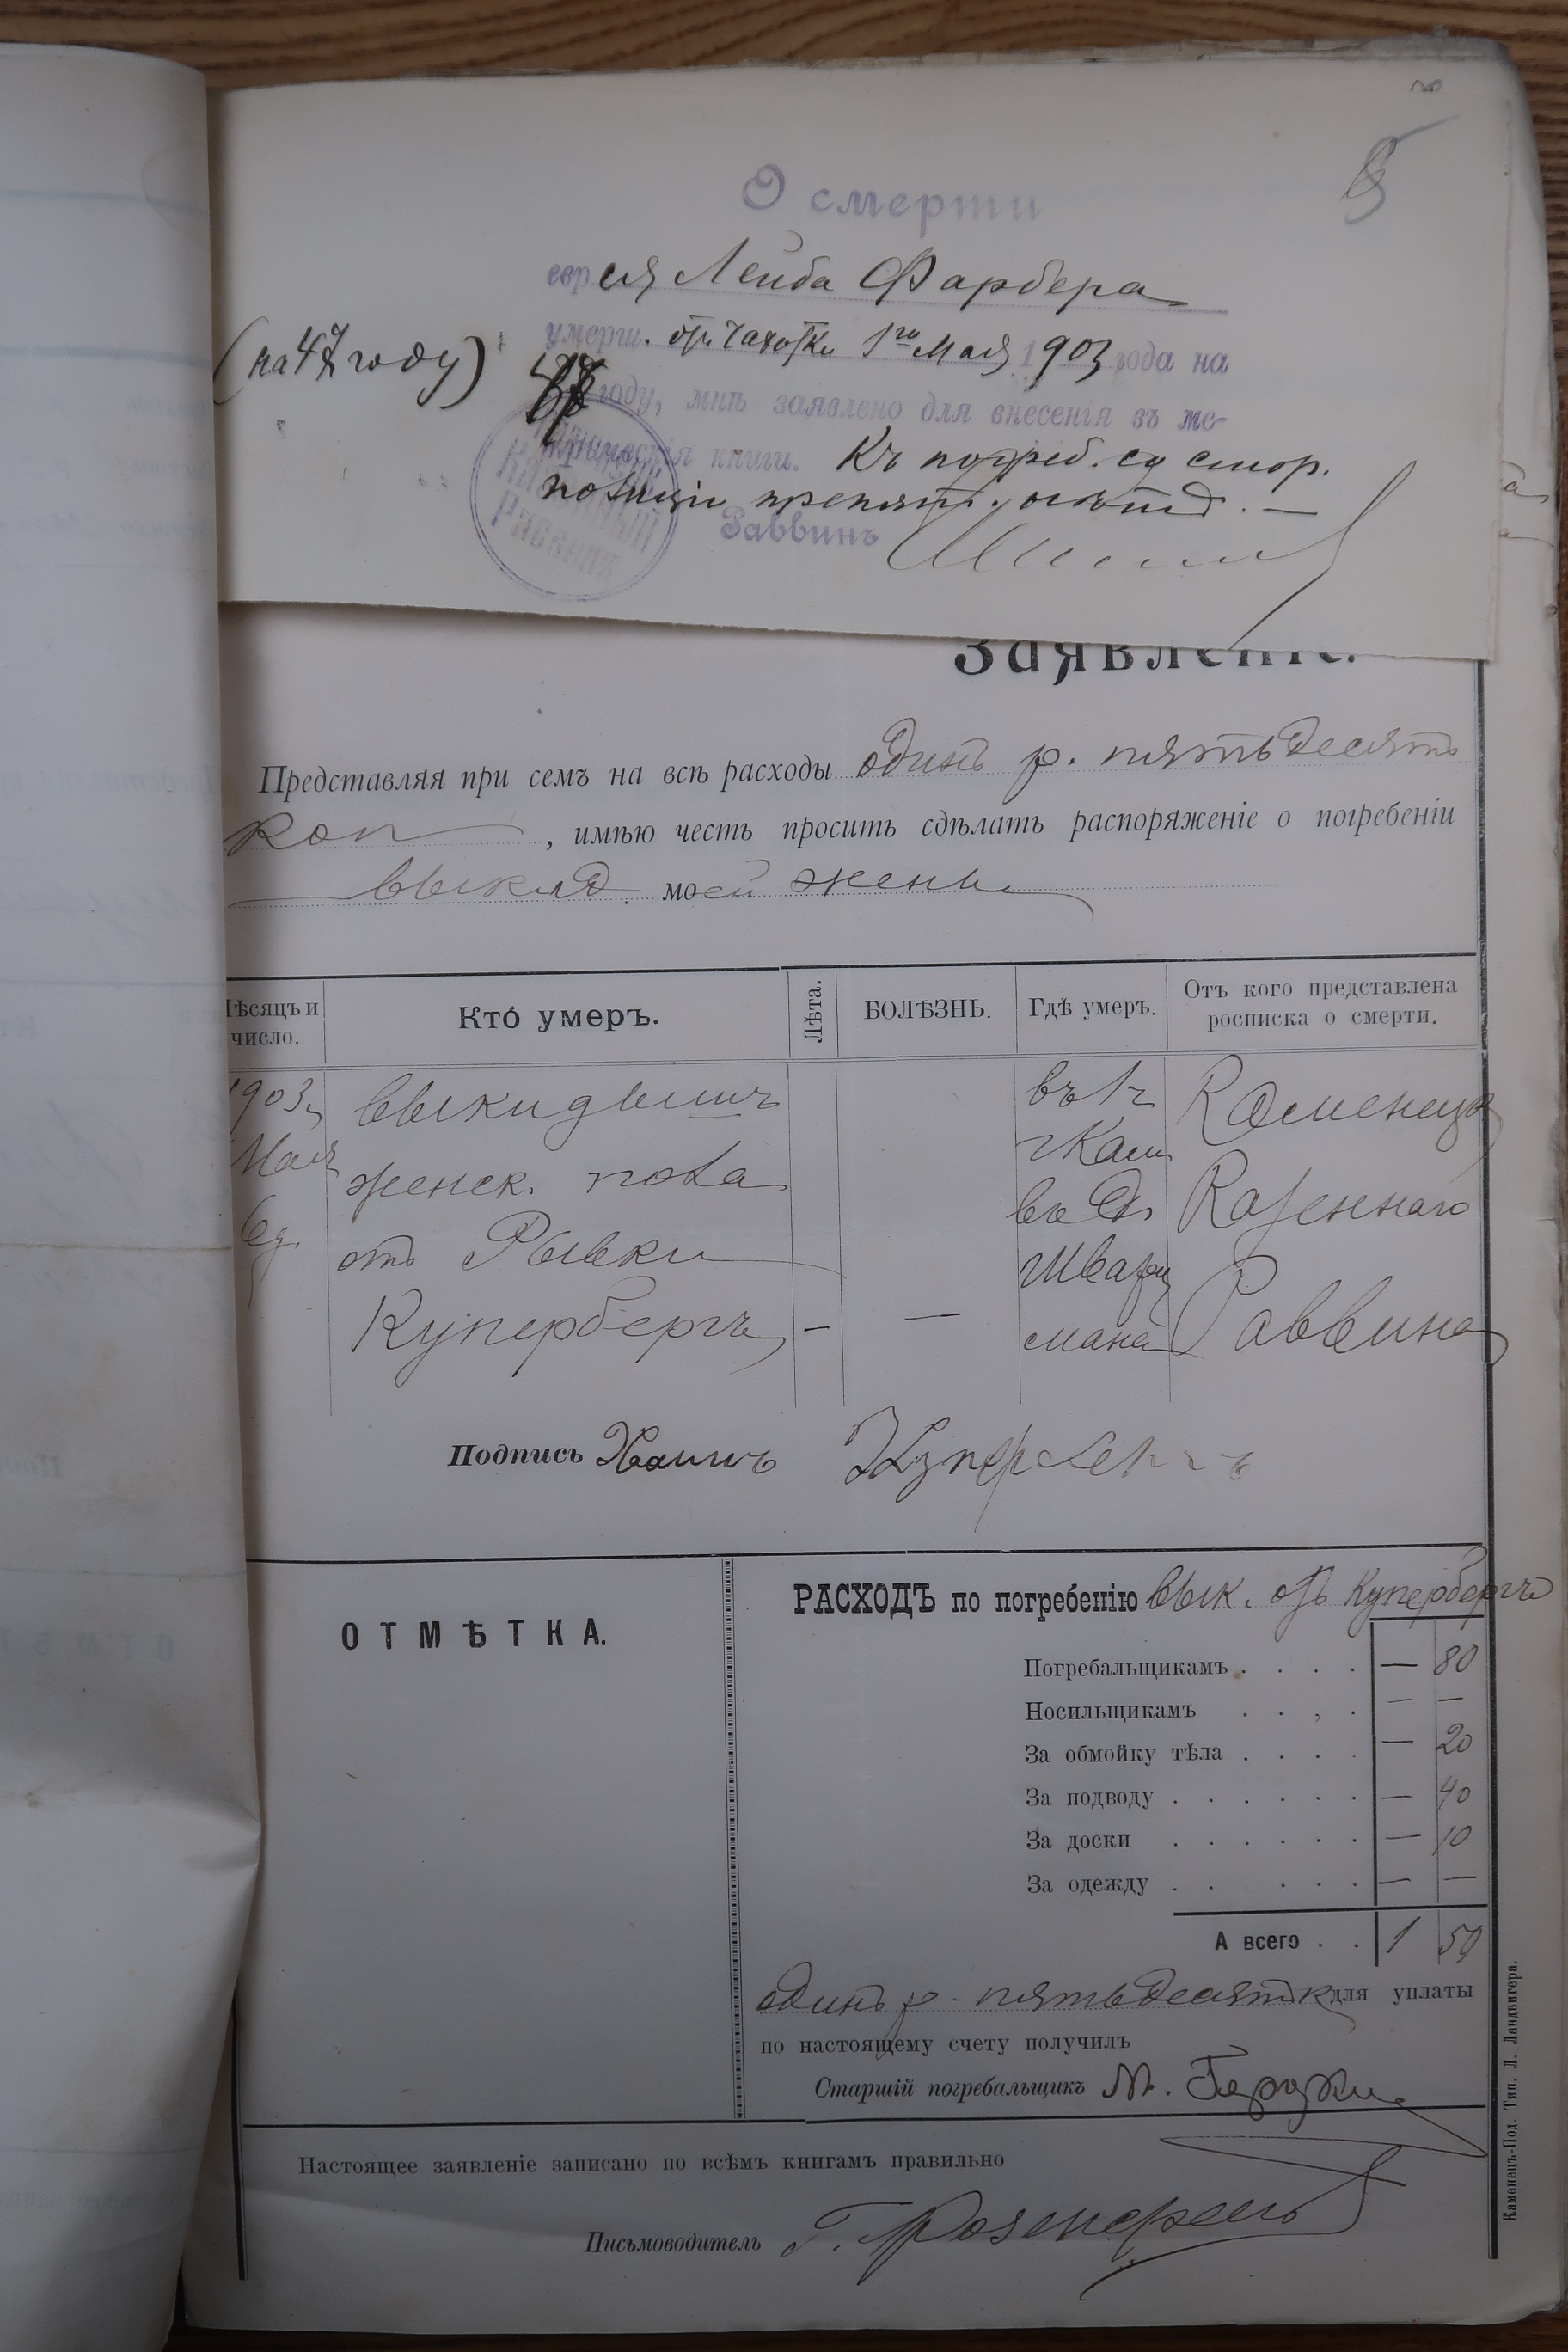 О смерти
еврея Лейба Фарбера
умерш. отъ чахотки 1го Мая 1903 года на
(на 47 году)
47 году, мнѣ заявлено для внесенія въ ме-
трическія книги. Къ погреб. со стор.
полиціи препятс.
Раввинъ
Казенный
Раввинъ
Заявленіе.
Представляя при семъ на всѣ расходы одинъ р. пятьдесятъ
коп , имѣю честь просить сдѣлать распоряженіе о погребеніи
выкид. моей жены
Мѣсяцъ и число. Кто умеръ. Лѣта. БОЛѢЗНЬ. Гдѣ умеръ. Отъ кого представлена росписка о смерти.
1903 выкидышъ въ г. Каменецъ
Мая женск. пола Кам Казеннаго
6 д. отъ Рывки въ д. Шварц Раввина
Купербергъ — — мана
Подпись Хаимъ Купербергъ
ОТМѢТКА.
РАСХОДЪ по погребенію вык. отъ Купербергъ
Погребальщикамъ . . . . — 80
Носильщикамъ . . . . — —
За обмойку тѣла . . . . — 20
За подводу . . . . . . — 40
За доски . . . . . . — 10
За одежду . . . . . . — —
А всего . . 1 50
одинъ р. пятьдесятъ к для уплаты
по настоящему счету получилъ
Старшій погребальщикъ М.
Настоящее заявленіе записано по всѣмъ книгамъ правильно
Письмоводитель Г.
Каменецъ-Под. Тип. Л. Ландвигера.